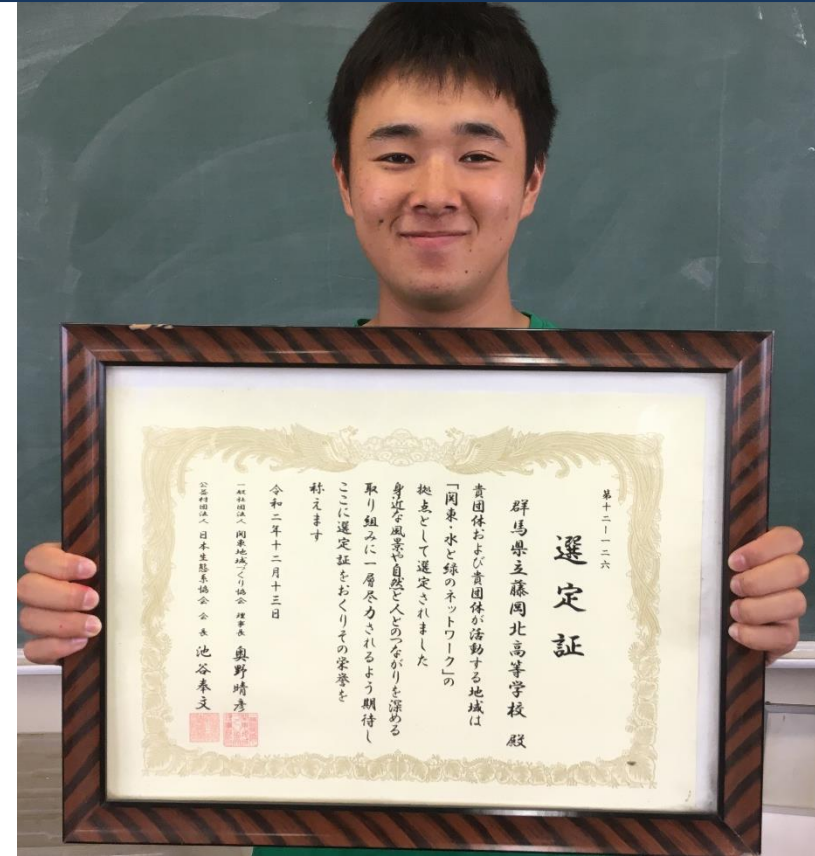 第十二―一二六
選定証
群馬県立藤岡北高等学校 殿
貴団体および貴団体が活動する地域は
「関東・水と緑のネットワーク」の
拠点として選定されました
身近な風景や自然と人とのつながりを深める
取り組みに一層尽力されるよう期待し
ここに選定証をおくりその栄誉を
称えます
令和二年十二月十三日
一般社団法人 関東地域づくり協会 理事長 奥野晴彦
公益財団法人 日本生態系協会 会長 池谷奉文